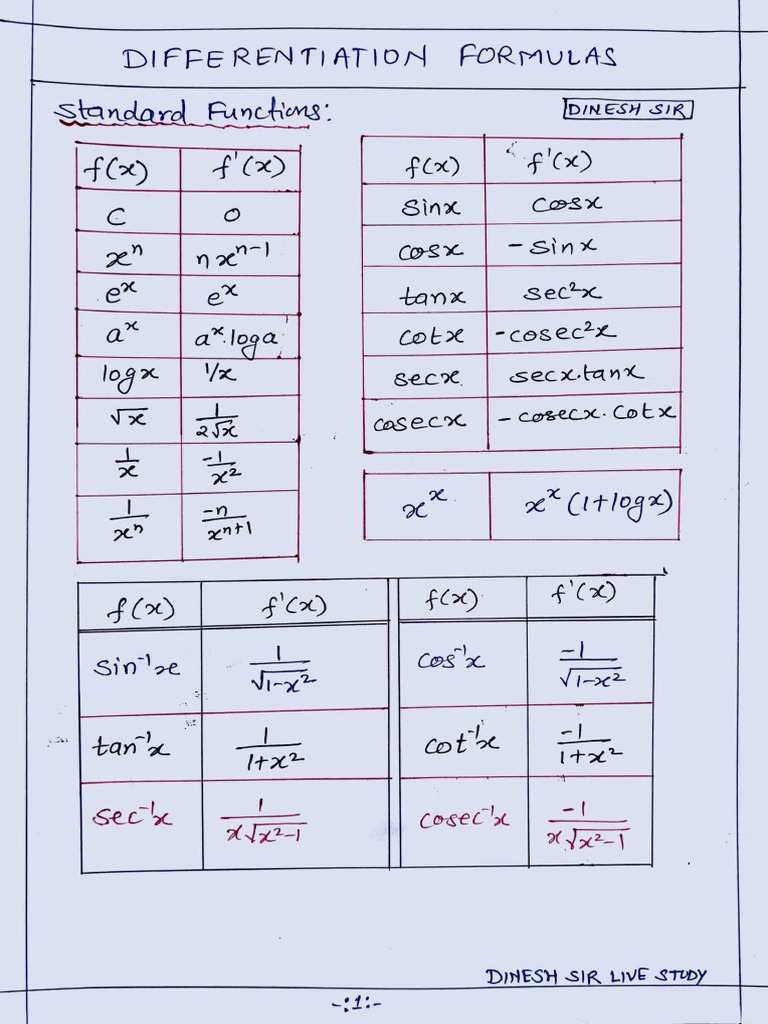 DIFFERENTIATION FORMULAS
Standard Functions:
DINESH SIR
f(x) f'(x)
C 0
xⁿ nxⁿ⁻¹
eˣ eˣ
aˣ aˣ.loga
logx 1/x
√x 1/(2√x)
1/x -1/x²
1/xⁿ -n/xⁿ⁺¹
f(x) f'(x)
sinx cosx
cosx -sinx
tanx sec²x
cotx -cosec²x
secx secx.tanx
cosecx -cosecx.cotx
xˣ xˣ(1+logx)
f(x) f'(x) f(x) f'(x)
sin⁻¹x 1/√(1-x²) cos⁻¹x -1/√(1-x²)
tan⁻¹x 1/(1+x²) cot⁻¹x -1/(1+x²)
sec⁻¹x 1/(x√(x²-1)) cosec⁻¹x -1/(x√(x²-1))
DINESH SIR LIVE STUDY
-:1:-